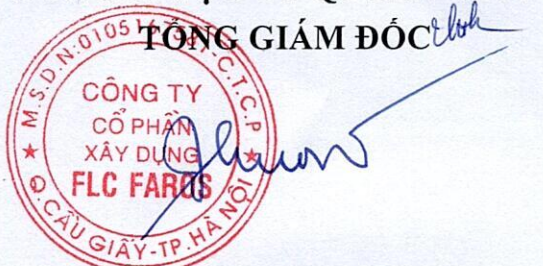 TỔNG GIÁM ĐỐC
M.S.D.N:010516
C.T.C.P
CÔNG TY
CỔ PHẦN
XÂY DỰNG
FLC FAROS
Q.CẦU GIẤY-TP.HÀ NỘI